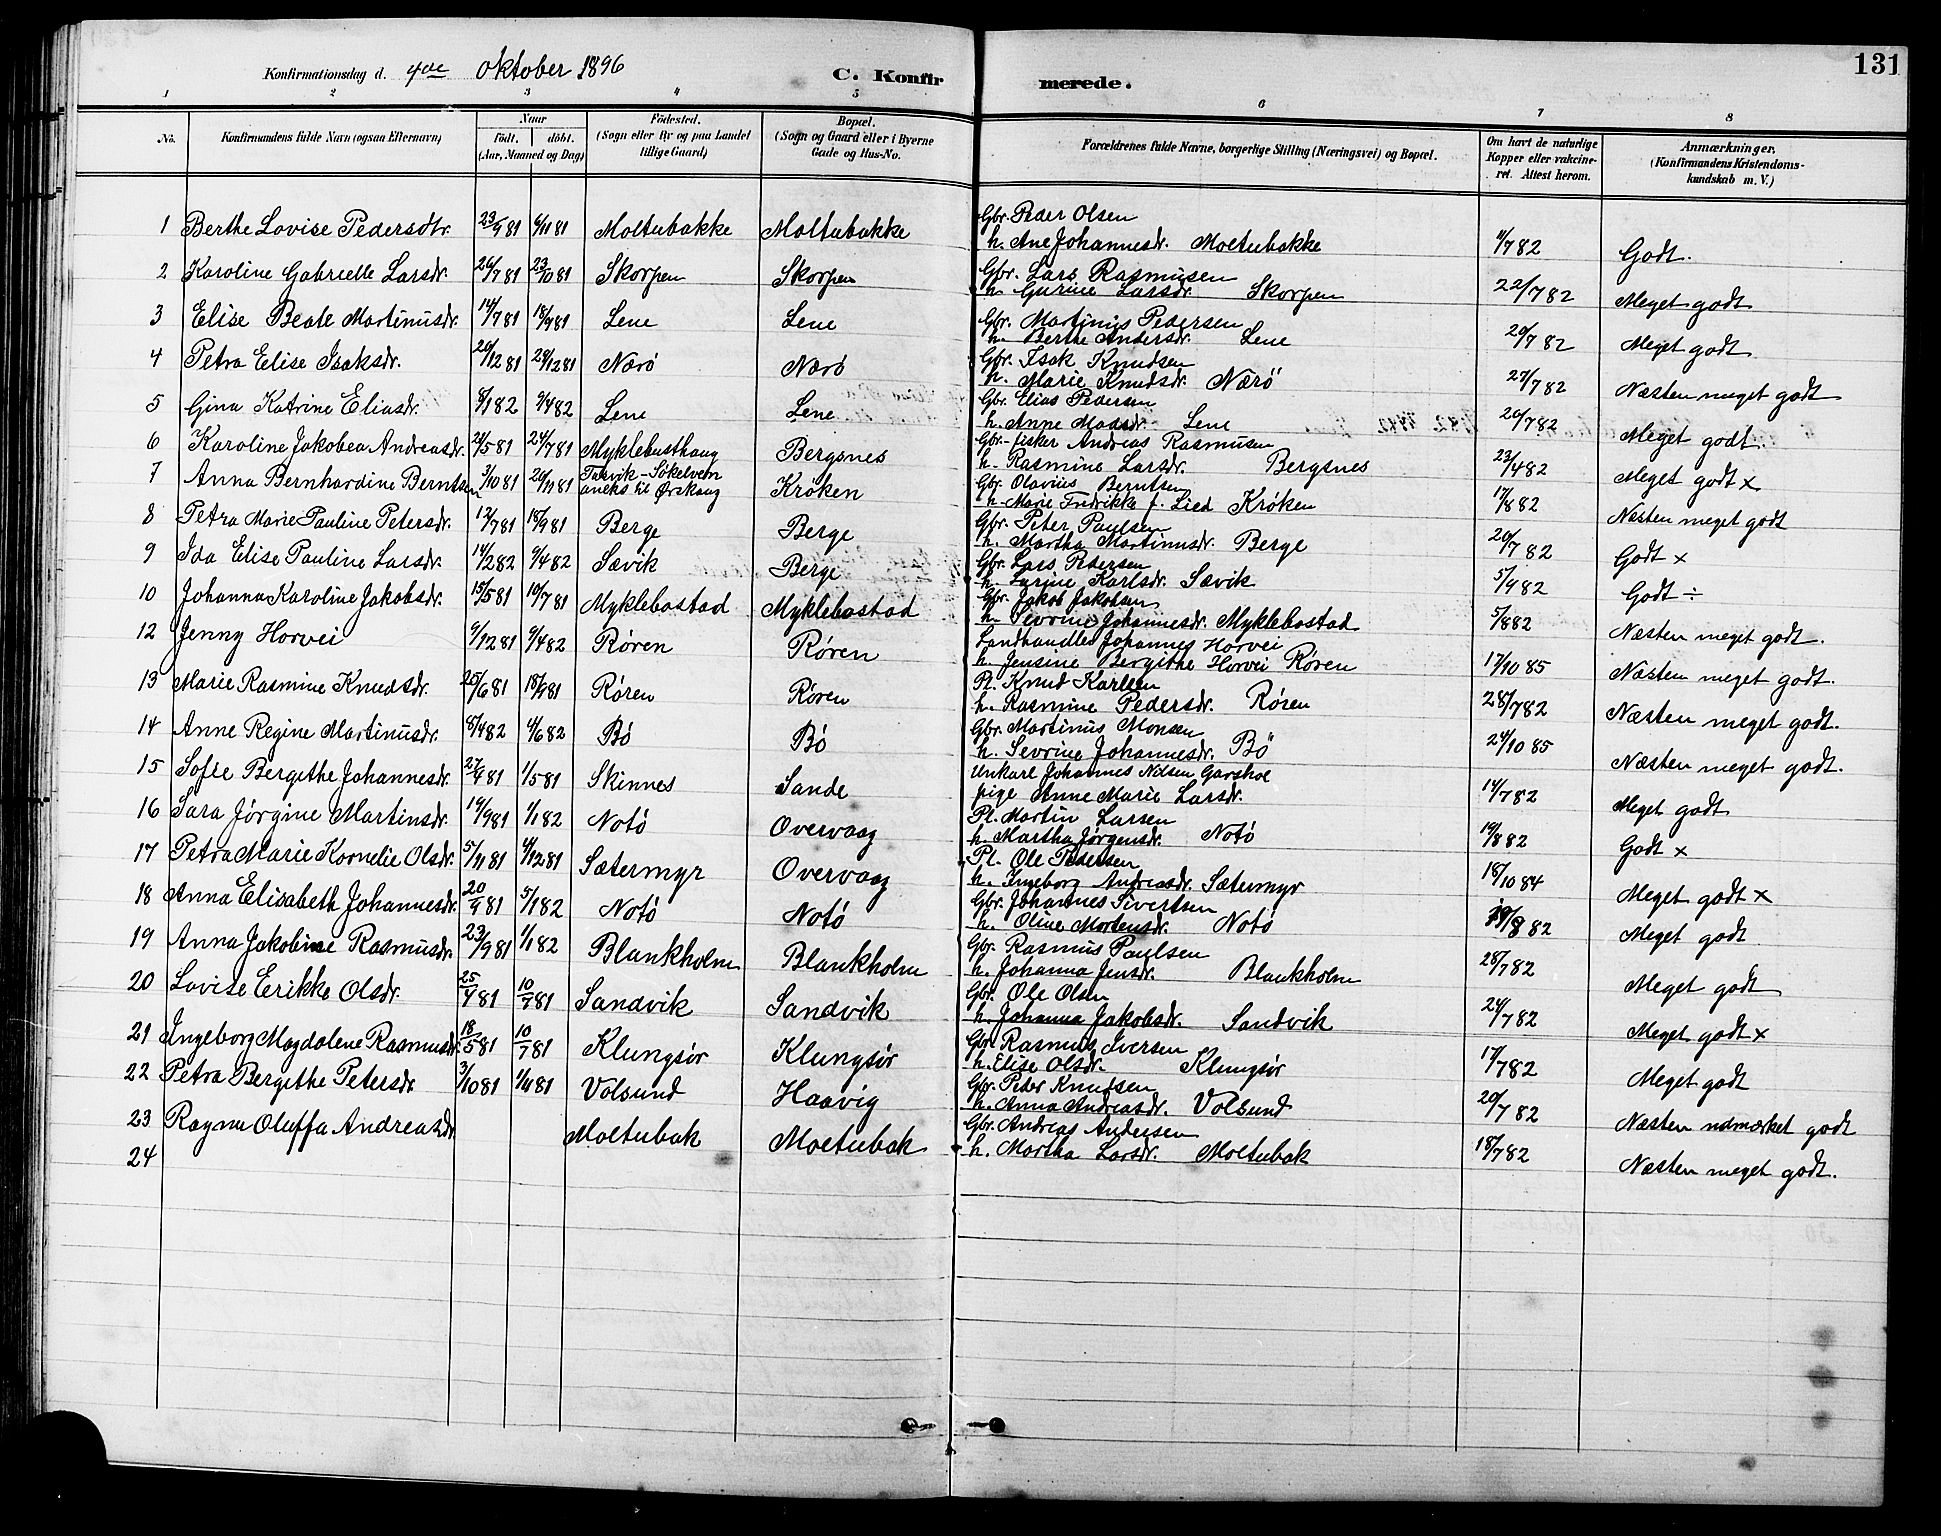 131
Konfirmationsdag d. 4de oktober 1896
C. Konfirmerede.
1 2 3 4 5 6 7 8
No.
Konfirmandens fulde Navn (ogsaa Efternavn)
Naar
födt. döbt.
(Aar, Maaned og Dag)
Födested.
(Sogn eller By og paa Landet
tillige Gaard)
Bopæl.
(Sogn og Gaard eller i Byerne
Gade og Hus-No.
Forældrenes fulde Navne, borgerlige Stilling (Næringsvei) og Bopæl.
Om havt de naturlige
Kopper eller vaccine-
ret. Attest herom.
Anmærkninger.
(Konfirmandens Kristendoms-
kundskab m. V.)
1 Berthe Lovise Pedersdtr. 23/9 81 6/11 81 Moltubakke Moltubakke Gbr. Peder Olsen
h. Ane Johannesdr. Moltubakke 11/7 82 Godt.
2 Karoline Gabrielle Larsdr. 26/7 81 23/10 81 Skorpen Skorpen Gbr. Lars Rasmusen
h. Gurine Larsdr. Skorpen 22/7 82 Meget godt
3 Elise Beate Martinusdr. 14/7 81 18/9 81 Lene Lene Gbr. Martinus Pedersen
h. Berthe Andersdr. Lene 20/7 82 Meget godt
4 Petra Elise Isaksdr. 20/12 81 28/12 81 Nærö Nærö Gbr. Isak Knudsen
h. Marie Knudsdr. Nærö 27/7 82 Næsten meget godt
5 Gina Katrine Eliasdr. 8/1 82 9/4 82 Lene Lene Gbr. Elias Pedersen
h. Anne Madsdr. Lene 20/7 82 Meget godt.
6 Karoline Jakobea Andreasdr. 24/5 81 24/7 81 Myklebusthaug Bergsnes Gbr. fisker Andreas Rasmusen
h. Rasmine Larsdr. Bergsnes 23/4 82 Meget godt x
7 Anna Bernhardine Berntsen 3/10 81 20/11 81 Tusvik-Sökelven
aneks til Ørskaug Kröken Gbr. Olavius Berntsen
h. Marie Fredrikke f. Lied Kröken 17/8 82 Næsten meget godt
8 Petra Marie Pauline Petersdr. 12/7 81 18/9 81 Berge Berge Gbr. Peter Paulsen
h. Martha Martinusdr. Berge 20/7 82 Godt x
9 Ida Elise Pauline Larsdr. 14/2 82 9/4 82 Sævik Berge Gbr. Lars Pedersen
h. Larine Karlsdr. Sævik 5/9 82 Godt ÷
10 Johanna Karoline Jakobsdr. 15/5 81 10/7 81 Myklebostad Myklebostad Gbr. Jakob Jakobsen
h. Sevrine Johannesdr. Myklebostad 5/8 82 Næsten meget godt.
12 Jenny Horvei 9/12 81 9/4 82 Røren Røren Landhandler Johannes Horvei
h. Jensine Bergithe Horvei Røren 17/10 85 Næsten meget godt.
13 Marie Rasmine Knudsdr. 25/6 81 18/9 81 Røren Røren Pl. Knud Karlsen
h. Rasmine Pedersdr. Røren 28/7 82 Næsten meget godt.
14 Anne Regine Martinusdr. 8/4 82 4/6 82 Bö Bö Gbr. Martinus Monsen
h. Sevrine Johannesdr. Bö 24/10 85 Næsten meget godt.
15 Sofie Bergithe Johannesdr. 27/4 81 1/5 81 Skinnes Sande Unkarl Johannes Nilsen Garshol
pige Anne Marie Larsdr. 14/7 82 Meget godt
16 Sara Jørgine Martinsdr. 19/9 81 1/1 82 Notö Overvaag Pl. Martin Larsen
h. Martha Jørgensdr. Notö 19/8 82 Godt x
17 Petra Marie Kornelie Olsdr. 5/11 81 4/12 81 Sætermyr Overvaag Pl. Ole Pedersen
h. Ingeborg Andreasdr. Sætermyr 18/10 84 Meget godt x
18 Anna Elisabeth Johannesdr. 20/9 81 5/1 82 Notö Notö Gbr. Johannes Sivertsen
h. Oline Mortensdr. Notö 19/8 82 Meget godt
19 Anna Jakobine Rasmusdr. 23/9 81 1/1 82 Blankholm Blankholm Gbr. Rasmus Paulsen
h. Johanna Jensdr. Blankholm 28/7 82 Meget godt
20 Lovise Erikke Olsdr. 25/4 81 10/7 81 Sandvik Sandvik Gbr. Ole Olsen
h. Johanna Jakobsdr. Sandvik 24/7 82 Meget godt x
21 Ingeborg Magdalene Rasmusdr. 18/5 81 10/7 81 Klungsør Klungsør Gbr. Rasmus Iversen
h. Elise Olsdr. Klungsør 17/7 82 Meget godt
22 Petra Bergithe Petersdr. 3/10 81 1/11 81 Volsund Haavig Gbr. Peder Knudsen
h. Anna Andreasdr. Volsund 20/7 82 Næsten udmærket godt
23 Ragna Oluffa Andreasdr Moltubak Moltubak Gbr. Andreas Andersen
24 h. Martha Larsdr. Moltubak 18/7 82 Næsten meget godt.